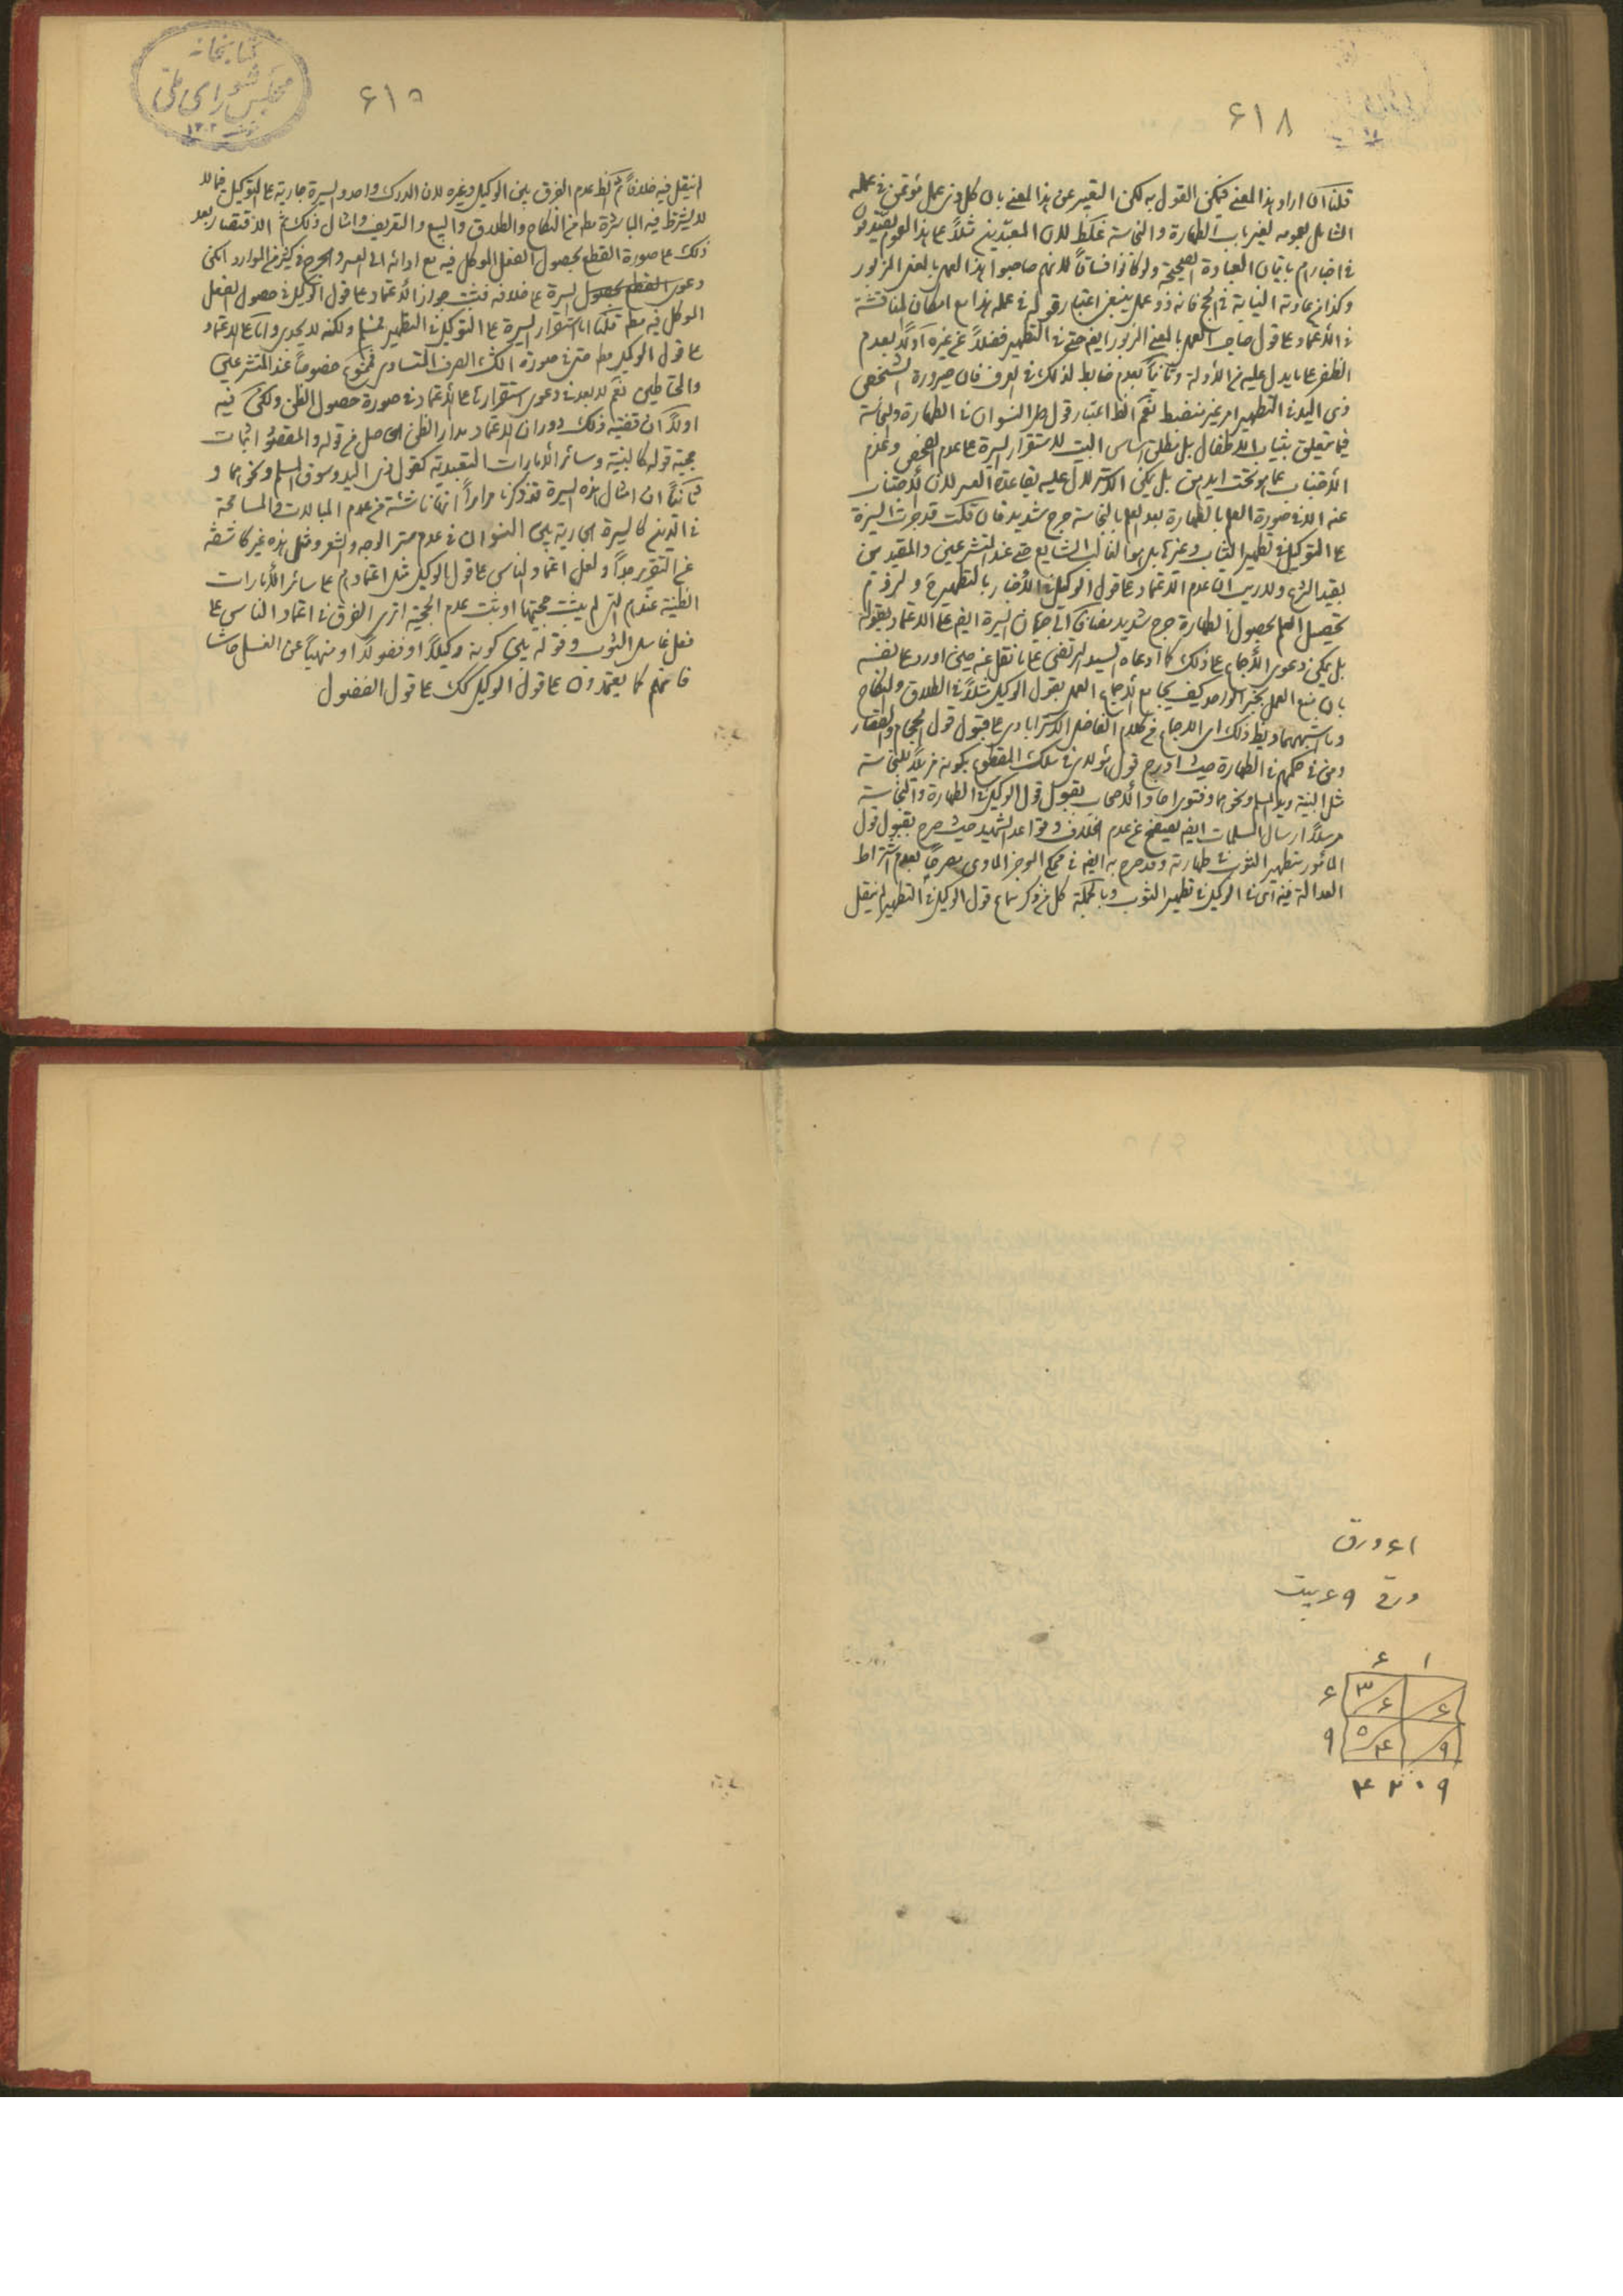 ۶۱۸
قلنا ان اراد هذا المعنے فيمكن القول به لكن التعبير عن هذا المعنے بان كل ذى عمل مؤتمن فى عمله
الشامل بعمومه لغير باب الطهارة والنجاسة غلط لان المعبّدين مثلاً
فى اخبارهم باتيان العبادة الصحيحة ولو كانوا فساقاً لانهم صاحبوا هذا العمل بالمعنى المزبور
وكذا من عادته النيابة فى الحج فانه ذو عمل ينبغى اعتبار قوله فى عمله هذا مع امكان المناقشة
فى الاعتماد على قول صاحب العمل بالمعنى المزبور ايضا حتى فى التطهير فضلاً عن غيره اولاً بعدم
الظفر بما يدل عليه من الادلة وثانياً بعدم ضابط لذلك فى العرف فان صيرورة الشخص
ذى اليد فى التطهير امر غير منضبط نعم الظ اعتبار قول النسوان فى الطهارة والنجاسة
فيما يتعلق بثياب الاطفال بل مطلق اساس البيت لاستقرار السيرة على عدم الفحص وعدم
الاجتناب عما هو تحت ايديهن بل يمكن الاستدلال عليه بقاعدة العسر لان الاجتناب
عنه الا فى صورة العلم بالطهارة بعد العلم بالنجاسة حرج شديد فان قلت قد جرت السيرة
على التوكيل فى تطهير الثياب وغيرها بل هو الغالب الشايع حتى عند المتشرعين والمقيدين
بقيد الشرع ولا ريب ان عدم الاعتماد على قول الوكيل فى الاخبار بالتطهير
تحصيل العلم بحصول الطهارة حرج شديد مضافاً الى جريان السيرة ايضا على الاعتماد بقوله
بل يمكن دعوى الاجماع على ذلك كما ادعاه السيد المرتضى على ما نقل عنه حين اورد على نفسه
بان منع العمل بخبر الواحد كيف يجامع الاجماع العمل بقول الوكيل مثلاً فى الطلاق والنكاح
وما اشبههما ويظ ذلك اى الاجماع من كلام الفاضل الاسترابادى على قبول قول الحجام والقصار
ومن فى حكمهم فى الطهارة حيث ادرج قول هؤلاء فى سلك المقطوع بكونه مزيلاً للنجاسة
مثل البينة ويد المسلم ونحوهما وفتوى الاصحاب بقبول قول الوكيل فى الطهارة والنجاسة
مرسلاً ارسال المسلمات ايضا عن عدم الخلاف وقواعد الشهيد حيث صرح بقبول قول
المأمور بتطهير الثوب فى طهارته وقد صرح به ايضا فى محكى الموجز الحاوى مصرحاً بعدم اشتراط
العدالة فيه اى فى الوكيل فى تطهير الثوب وبالجملة كل من ذكر سماع قول الوكيل فى التطهير لم ينقل
كتابخانه
مجلس شوراى ملى
۱۳۰۲
۶۱۹
لم ينقل فيه خلافاً ثم الظ عدم الفرق بين الوكيل وغيره لان المدرك واحد والسيرة جارية على التوكيل فيما لا
لا يشترط فيه المباشرة مط من النكاح والطلاق والبيع والتعريف وامثال ذلك ثم الاقتصار بعد
ذلك على صورة القطع بحصول الفعل الموكل فيه مع ادائه الى العسر والحرج فى كثير من الموارد امكن
دعوى القطع بحصول السيرة على خلافه فثبت جواز الاعتماد على قول الوكيل فى حصول الفعل
الموكل فيه مط قلنا اما استقرار السيرة على التوكيل فى التطهير فمسلم ولكنه لا يجدى واما على الاعتماد
على قول الوكيل مط حتى فى صورة الشك الصرف المتساوى فممنوع خصوصاً عند المتشرعين
والمحتاطين نعم لا بعد فى دعوى استقرارها على الاعتماد فى صورة حصول الظن ولكن فيه
اولاً ان قضية ذلك دوران الاعتماد مدار الظن الحاصل من قوله والمقصود اثبات
حجية قوله كالبينة وسائر الامارات التعبدية كقول ذى اليد وسوق المسلم ونحوهما و
ثانياً ان امثال هذه السيرة قد ذكرنا مراراً انها ناشئة من عدم المبالات والمسامحة
فى الدين كالسيرة الجارية بين النسوان فى عدم ستر الوجه والشعر ومثل هذه غير كاشفة
عن التقرير جداً ولعل اعتماد الناس على قول الوكيل مثل اعتمادهم على سائر الامارات
الظنية عندهم التى لم يثبت حجيتها او ثبت عدم الحجية اترى الفرق فى اعتماد الناس على
فعل غاسل الثوب وقوله بين كونه وكيلاً او فضولاً او منهياً عن الغسل حاشا
فانهم كما يعتمدون على قول الوكيل كك على قول الفضول
۶۱ ورق
ورق ۶۹ بيت
۶ ۱
۶ ۳ ۶ ۶
۹ ۵ ۴ ۹
۴ ۲ ۰ ۹